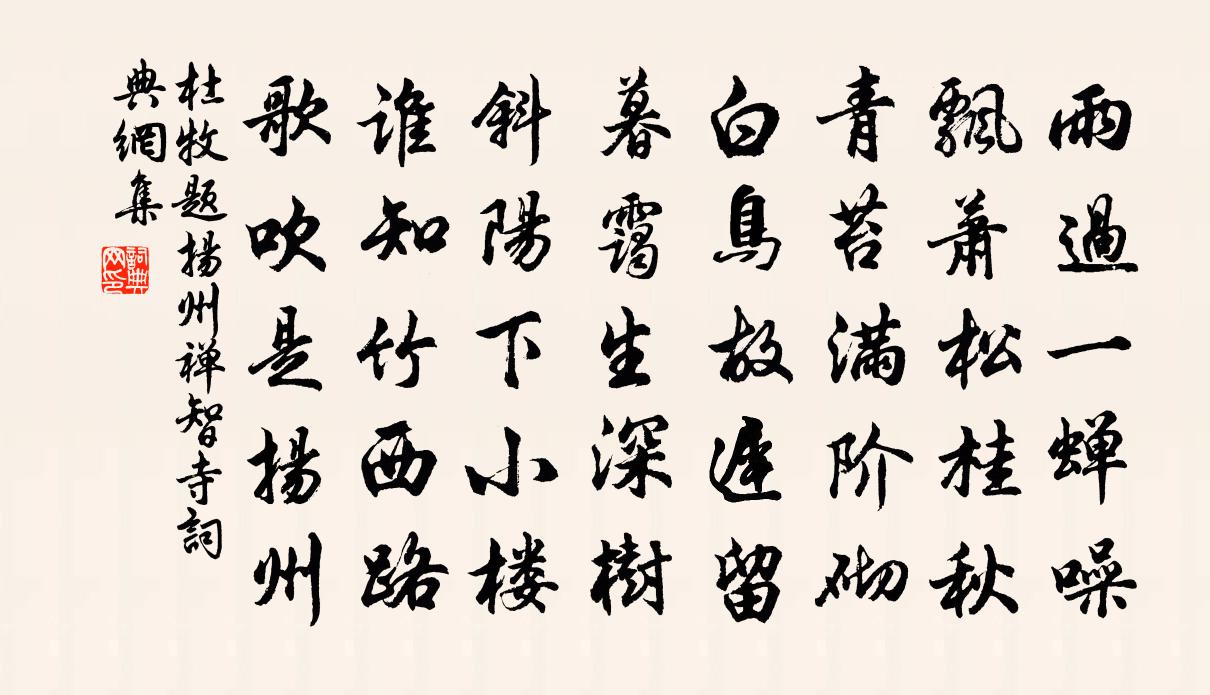 雨過一蝉噪
飄萧松桂秋
青苔满阶砌
白鳥故遲留
暮靄生深樹
斜陽下小楼
谁知竹西路
歌吹是揚州
杜牧题揚州禅智寺詞
典網集
詞典
网印